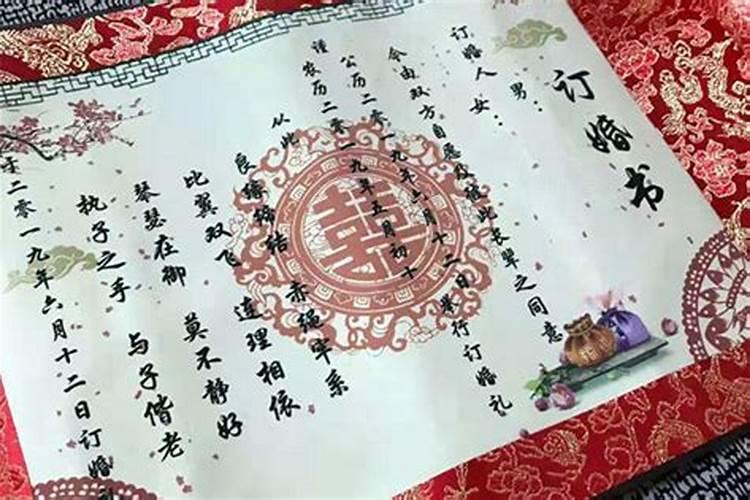 订婚书
订婚人 男:
女:
今由双方自愿及彼此长辈之同意
公历二零一九年六月十二日举行订婚礼
谨农历二零一九年五月初十
从此 赤绳牢系
良缘缔结 连理相依
比翼双飞 莫不静好
琴瑟在御 与子偕老
执子之手
于二零一九年六月十二日订婚